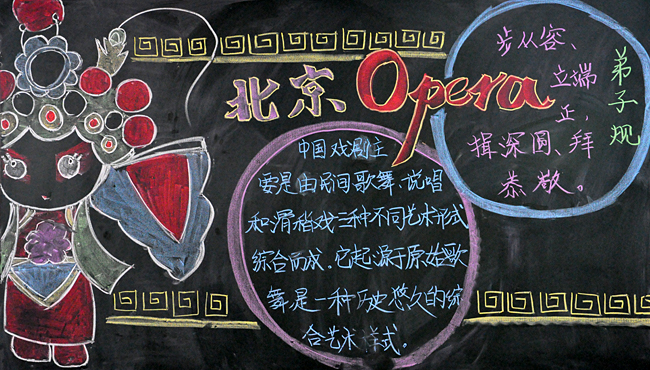 北京Opera
中国戏剧主
要是由民间歌舞、说唱
和滑稽戏三种不同艺术形式
综合而成。它起源于原始歌
舞,是一种历史悠久的综
合艺术样式。
弟子规
步从容、
立端
正,
揖深圆、拜
恭敬。